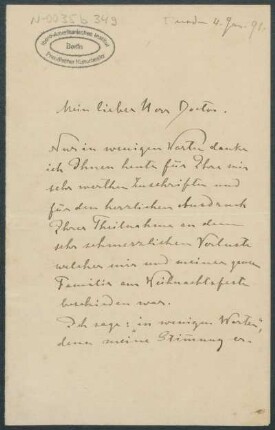 N-0035 b 349
Ibero-Amerikanisches Institut
Berlin
Preußischer Kulturbesitz
4. Jan. 92.
Mein lieber Herr Doctor.
Nur in wenigen Worten danke
ich Ihnen heute für Ihre mir
sehr werthen Zuschriften und
für den herzlichen Ausdruck
Ihrer Theilnahme an dem
sehr schmerzlichen Verluste
welcher mir und meiner ganzen
Familie am Weihnachtsfeste
beschieden war.
Ich sage: "in wenigen Worten",
denn meine Stimmung er-